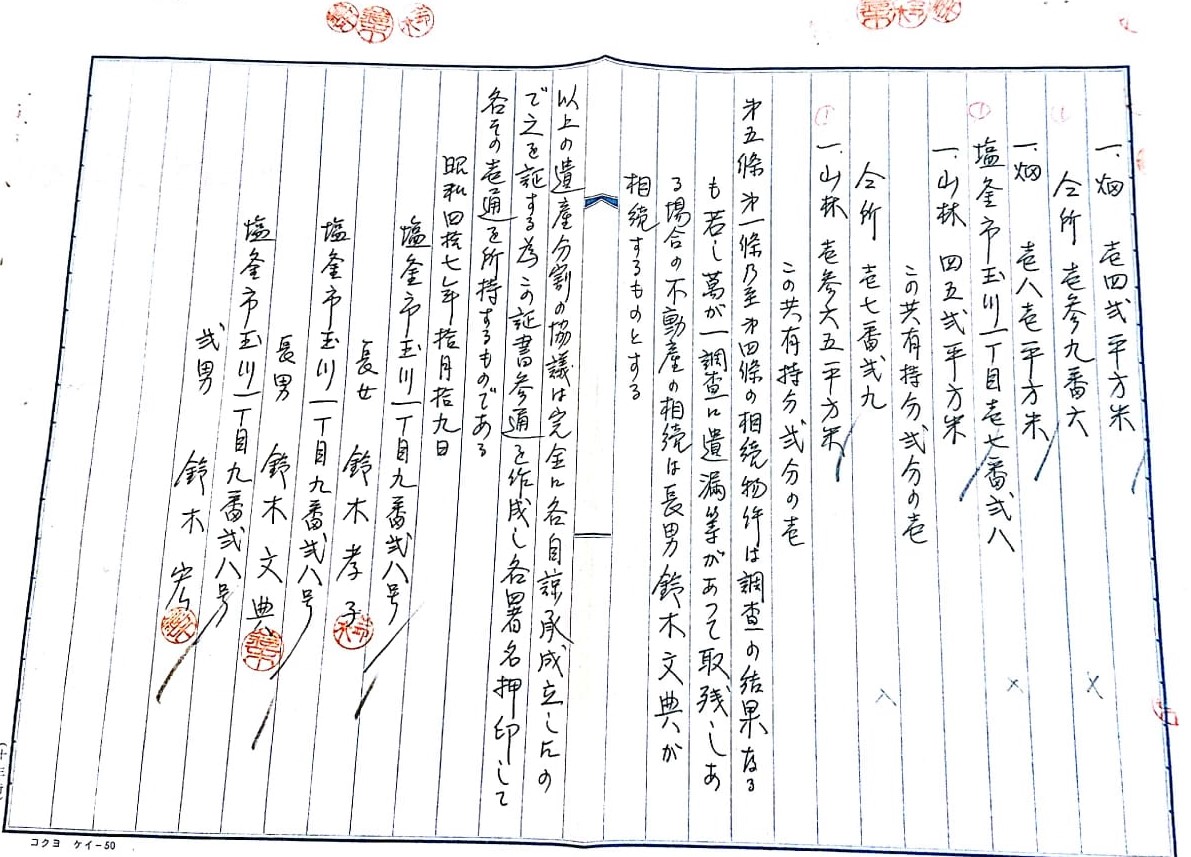 一、畑　壱四弐平方米
仝所　壱参九番六
一、畑　壱八壱平方米
塩釜市玉川一丁目壱七番弐八
一、山林　四五弐平方米
この共有持分弐分の壱
仝所　壱七番弐九
一、山林　壱参六五平方米
この共有持分弐分の壱
第五條　第一條乃至第四條の相続物件は調査の結果なる
も若し萬が一調査に遺漏等があつて取残しあ
る場合の不動産の相続は長男鈴木文典が
相続するものとする
以上の遺産分割の協議は完全に各自諒承成立したの
で之を証する為この証書参通を作成し各署名押印して
各その壱通を所持するものである
昭和四拾七年拾月拾九日
塩釜市玉川一丁目九番弐八号
長女　鈴木孝子
塩釜市玉川一丁目九番弐八号
長男　鈴木文典
塩釜市玉川一丁目九番弐八号
弐男　鈴木宏
コクヨ　ケイ－50